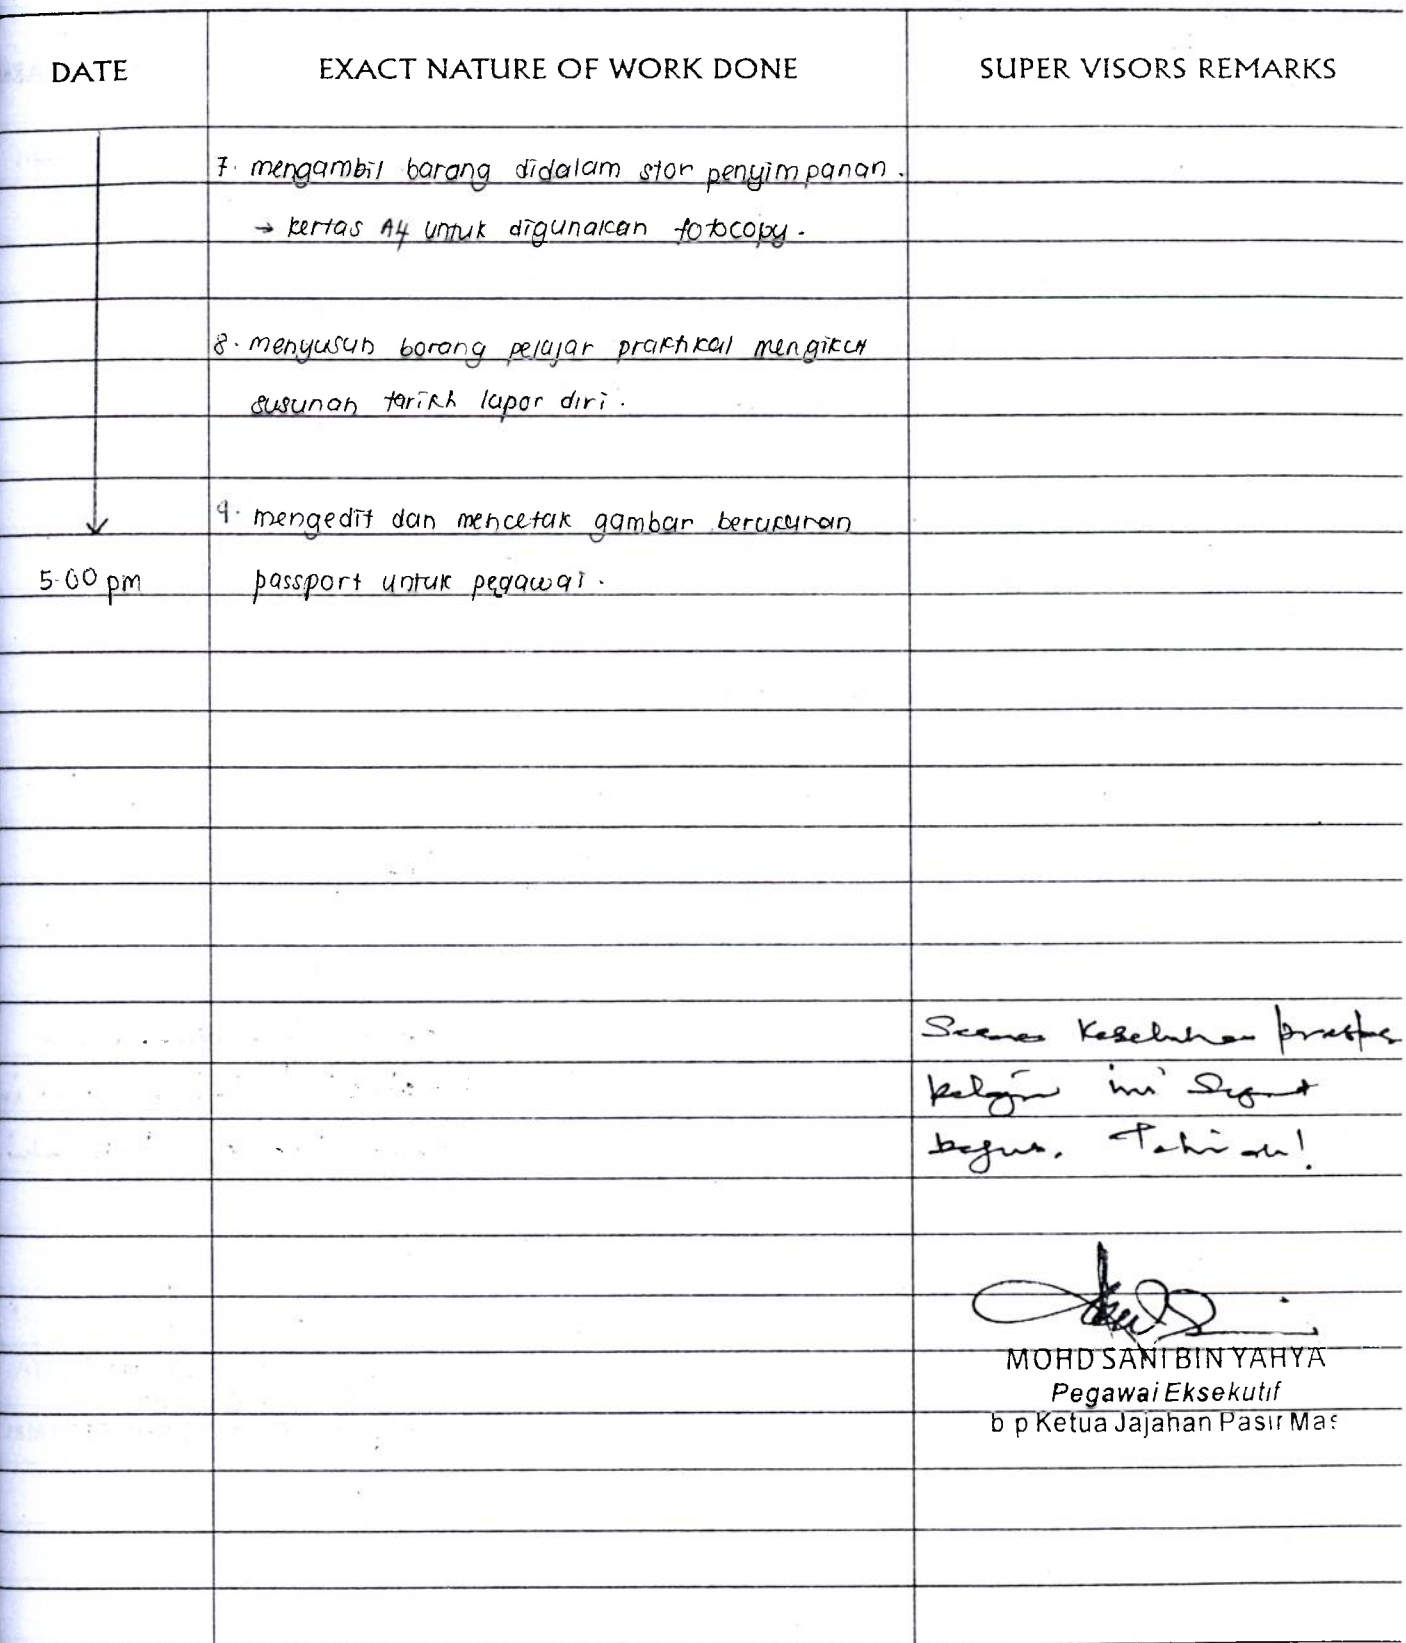 DATE
EXACT NATURE OF WORK DONE
SUPER VISORS REMARKS
7. mengambil barang didalam stor penyimpanan.
→ kertas A4 untuk digunakan fotocopy.
8. menyusun borang pelajar praktikal mengikut
susunan tarikh lapor diri.
9. mengedit dan mencetak gambar berukuran
5.00 pm
passport untuk pegawai.
Secara Keseluruhan prestasi
pelajar ini sangat
bagus. Tahniah!
MOHD SANI BIN YAHYA
Pegawai Eksekutif
b p Ketua Jajahan Pasir Mas